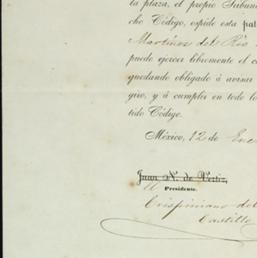 la plaza, el propio Tribunal
cho Código, expide esta pat
Martinez del Rio
puede ejercer libremente el c
quedando obligado á avisar
giro, y á cumplir en todo lo
tido Código.
México, 12 de Ene
Juan N. de Vertiz,
El
Presidente.
Crispiniano del
Castillo